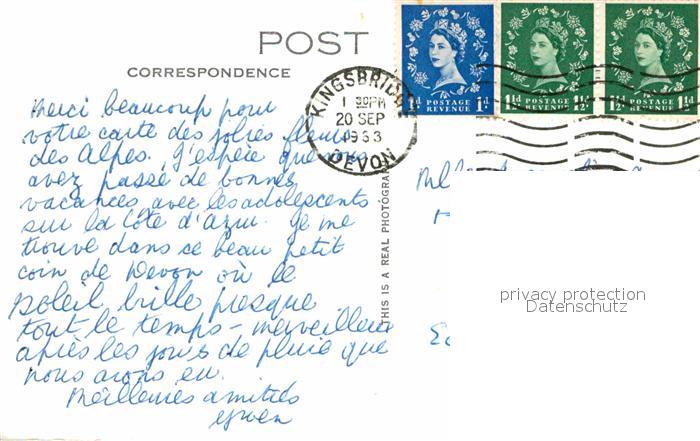 POST
CORRESPONDENCE
Merci beaucoup pour
votre carte des jolies fleurs
des Alpes. J'espère que vous
avez passé de bonnes
vacances avec les adolescents
sur la Côte d'Azur. Je me
trouve dans ce beau petit
coin de Devon où le
soleil brille presque
tout le temps - merveilleux
après les jours de pluie que
nous avons eu.
Meilleures amitiés
Gwen
THIS IS A REAL PHOTOGRAPH
KINGSBRIDGE
20 SEP
1963
DEVON
1d POSTAGE REVENUE 1d
1½d POSTAGE REVENUE 1½d
1½d POSTAGE REVENUE 1½d
privacy protection
Datenschutz